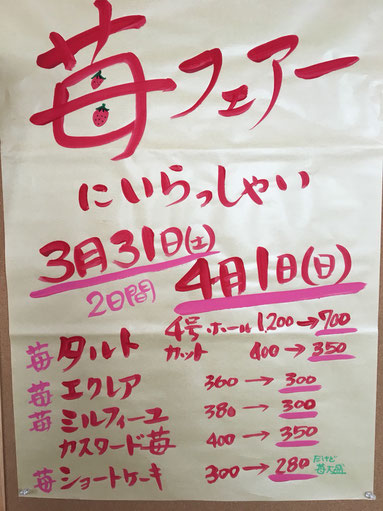 苺フェアー
にいらっしゃい
3月31日(土)
2日間 4月1日(日)
苺タルト 4号ホール 1,200→700
カット 400→350
苺エクレア 360→300
苺ミルフィーユ 380→300
カスタード苺 400→350
苺ショートケーキ 300→280
だけど